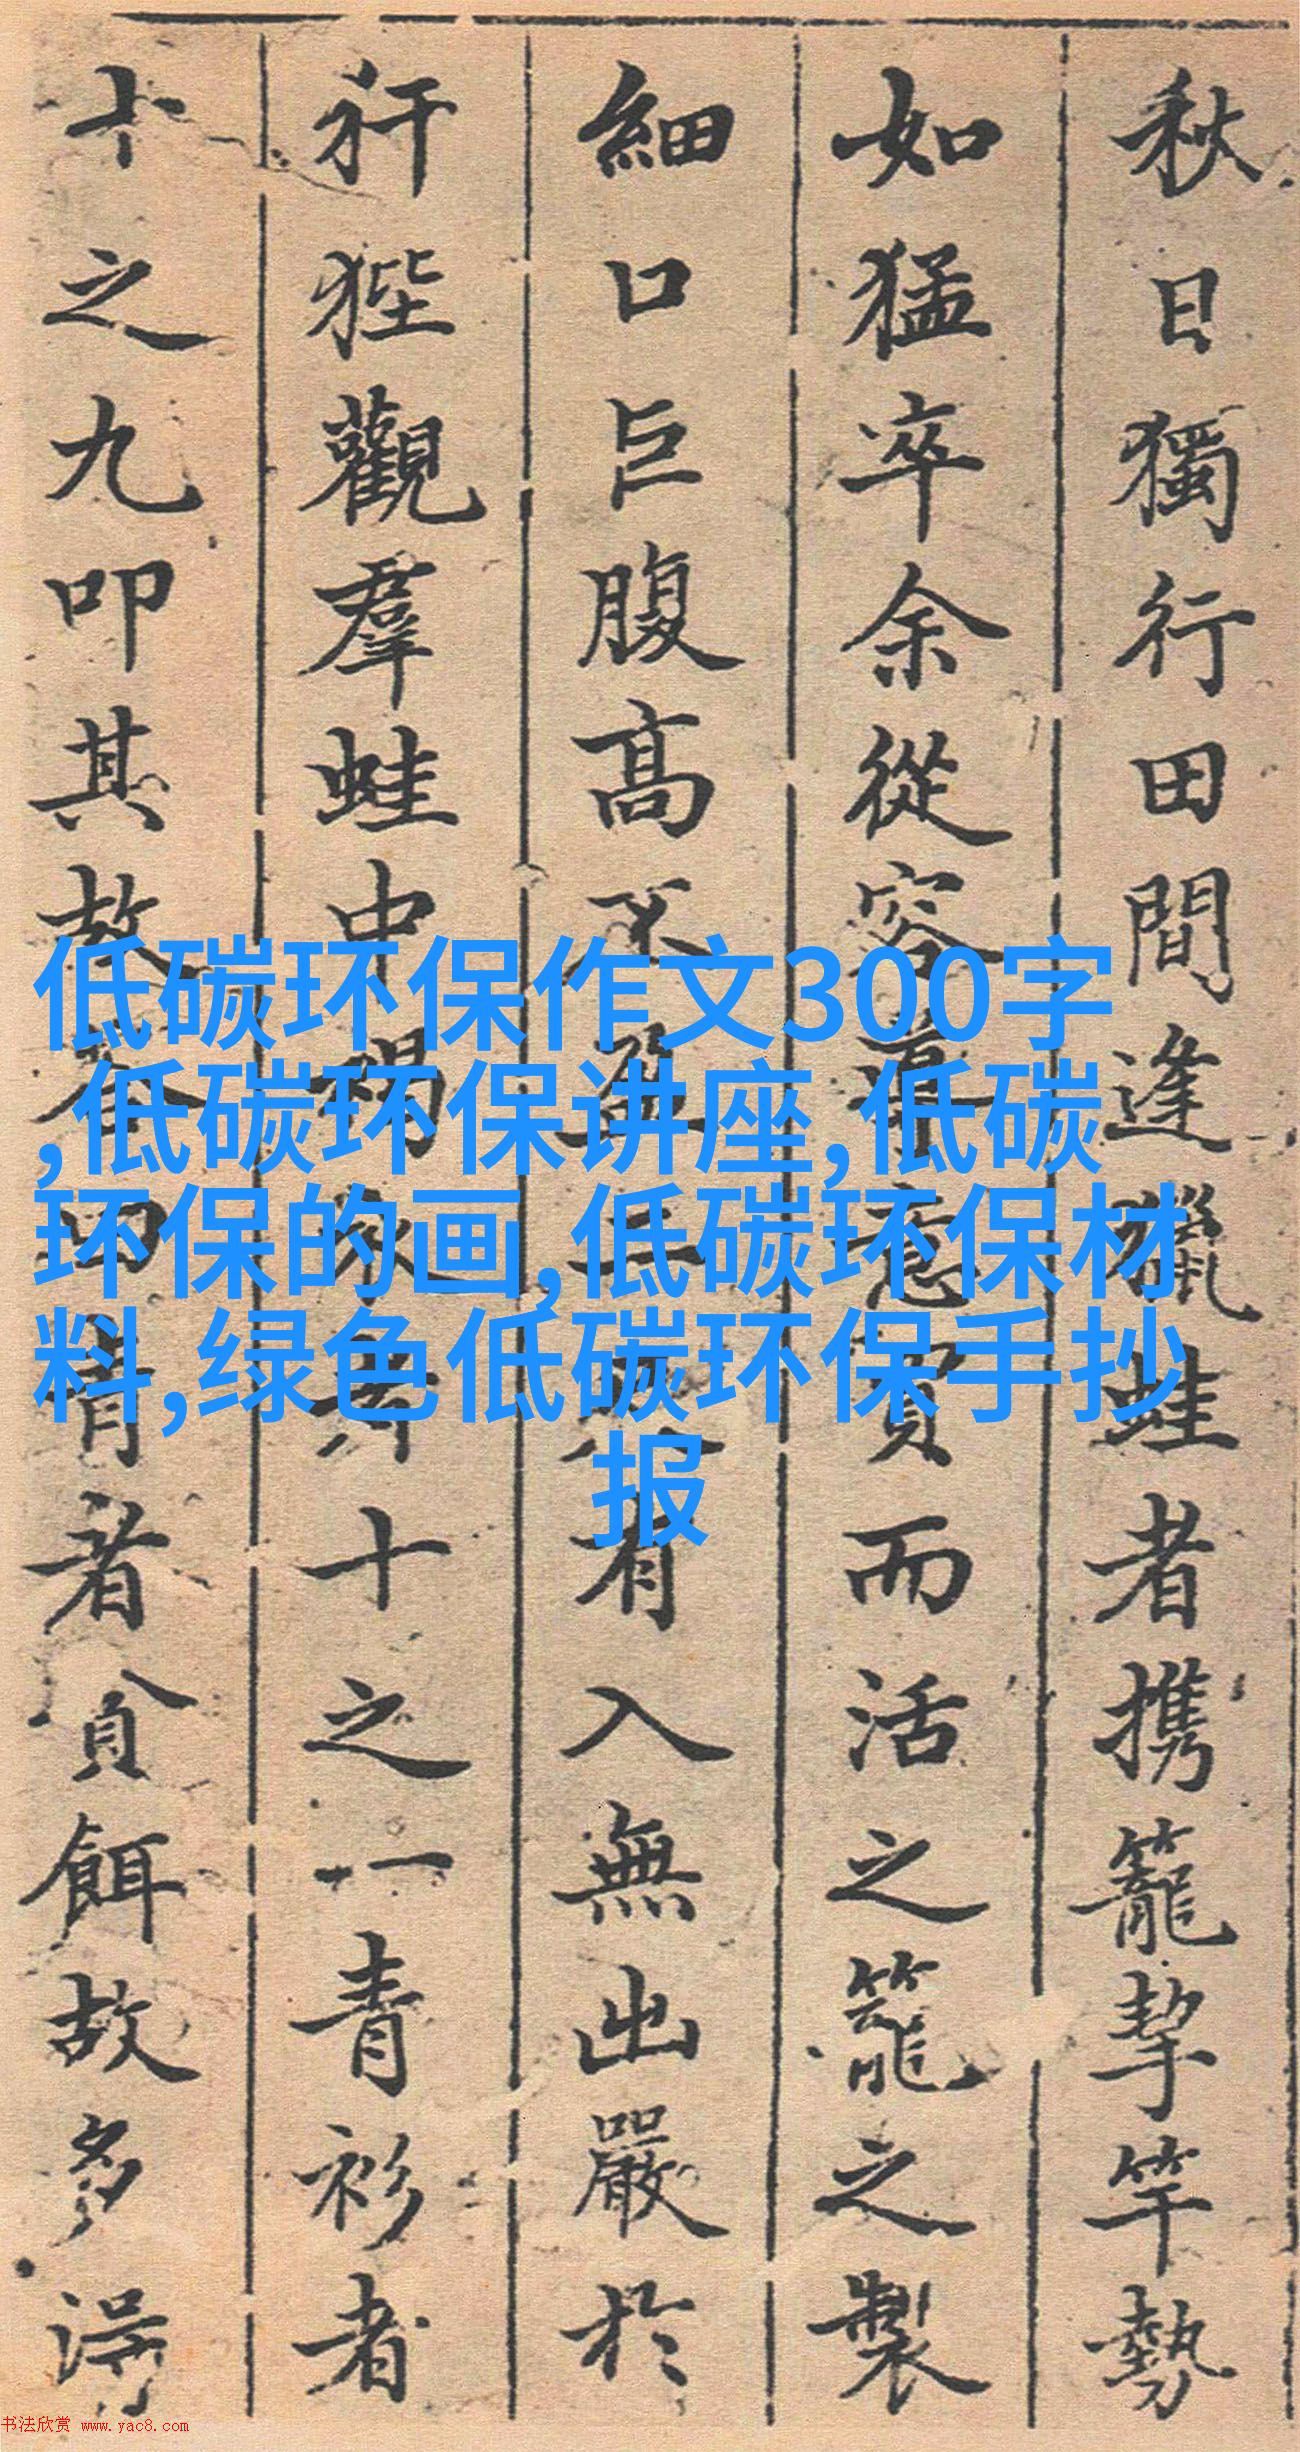 秋日獨行田間逢獵蛙者携籠挈竿勢
如猛卒余從容意買而活之籠之製
細口巨腹高不盈有入無出嚴於
犴狴觀羣蛙中十之一青衫者
十之九叩其故者貪餌故多得
低碳环保作文300字
,低碳环保讲座,低碳
环保的画,低碳环保材
料,绿色低碳环保手抄
报
书法欣赏 www.yac8.com